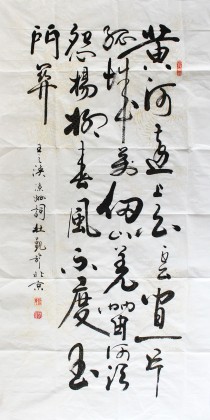 黄河遠上白雲間一片
孤城萬仞山羌笛何須
怨楊柳春風不度玉
門關
王之涣凉州詞杜 於北京